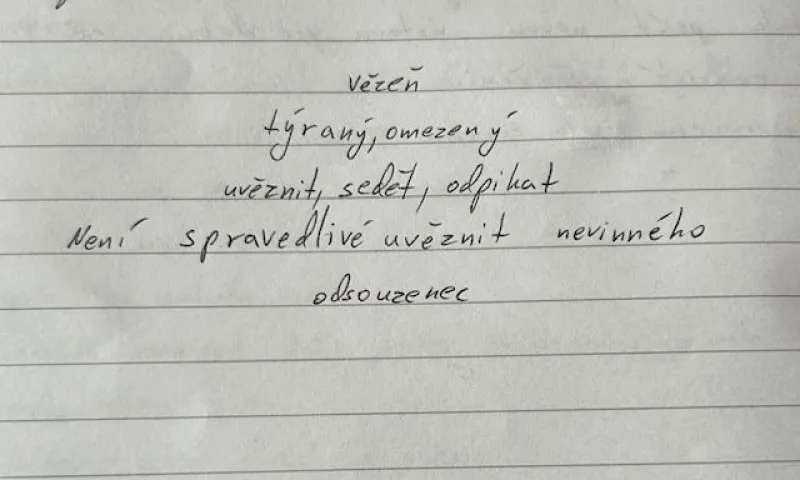 vězeň
týraný, omezený
uvěznit, sedět, odpikat
Není spravedlivé uvěznit nevinného
odsouzenec